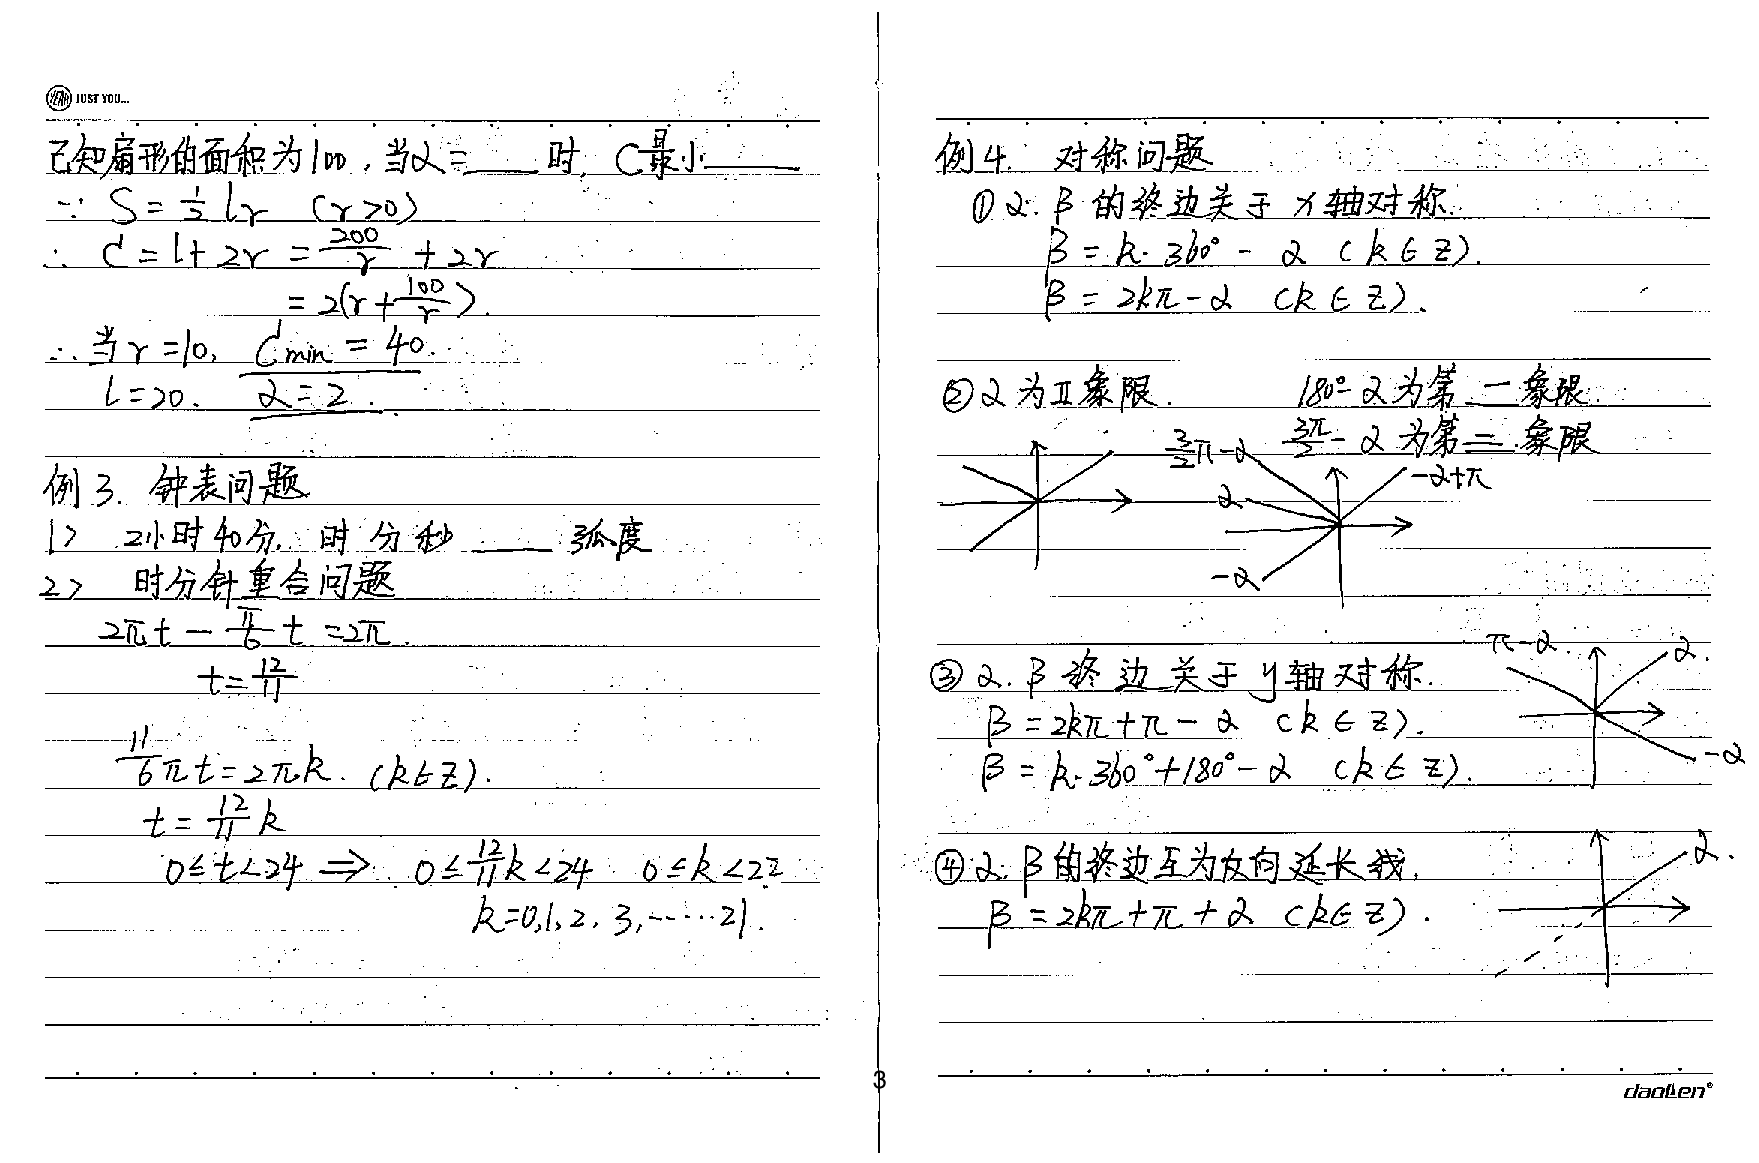 JUST YOU...
已知扇形的面积为100,当α=___时,C最小___
∵ S=½lr (r>0)
∴ C=l+2r=200/r+2r
=2(r+100/r).
∴当r=10, Cmin=40.
l=20. α=2.
例3. 钟表问题
1> 2小时40分. 时 分 秒 ___ 弧度
2> 时分针重合问题
2πt-π/6 t=2π.
t=12/11
11/6 πt=2πk. (k∈Z).
t=12/11 k
0≤t<24 ⇒ 0≤12/11 k<24 0≤k<22
k=0,1,2,3,……21.
例4. 对称问题
①α.β的终边关于x轴对称.
β=k·360°-α (k∈Z).
β=2kπ-α (k∈Z).
②α为Ⅱ象限. 180°-α为第一象限.
3π/2-α为第二象限
3/2π-α
-α+π
α
-α
π-α
α.
③α.β终边关于y轴对称.
β=2kπ+π-α (k∈Z).
-α
β=k·360°+180°-α (k∈Z).
α.
④α.β的终边互为反向延长线.
β=2kπ+π+α (k∈Z).
3
daolen®